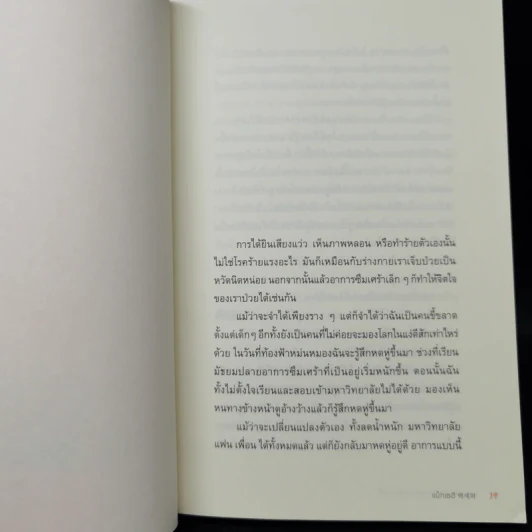 การได้ยินเสียงแว่ว เห็นภาพหลอน หรือทำร้ายตัวเองนั้น
ไม่ใช่โรคร้ายแรงอะไร มันก็เหมือนกับร่างกายเราเจ็บป่วยเป็น
หวัดนิดหน่อย นอกจากนั้นแล้วอาการซึมเศร้าเล็ก ๆ ก็ทำให้จิตใจ
ของเราป่วยได้เช่นกัน
แม้ว่าจะจำได้เพียงราง ๆ แต่ก็จำได้ว่าฉันเป็นคนขี้ขลาด
ตั้งแต่เด็กๆ อีกทั้งยังเป็นคนที่ไม่ค่อยจะมองโลกในแง่ดีสักเท่าไหร่
ด้วย ในวันที่ท้องฟ้าหม่นหมองฉันจะรู้สึกหดหู่ขึ้นมา ช่วงที่เรียน
มัธยมปลายอาการซึมเศร้าที่เป็นอยู่เริ่มหนักขึ้น ตอนนั้นฉัน
ทั้งไม่ตั้งใจเรียนและสอบเข้ามหาวิทยาลัยไม่ได้ด้วย มองเห็น
หนทางข้างหน้าดูอ้างว้างแล้วก็รู้สึกหดหู่ขึ้นมา
แม้ว่าจะเปลี่ยนแปลงตัวเอง ทั้งลดน้ำหนัก มหาวิทยาลัย
แฟน เพื่อน ได้ทั้งหมดแล้ว แต่ก็ยังกลับมาหดหู่อยู่ดี อาการแบบนี้
19